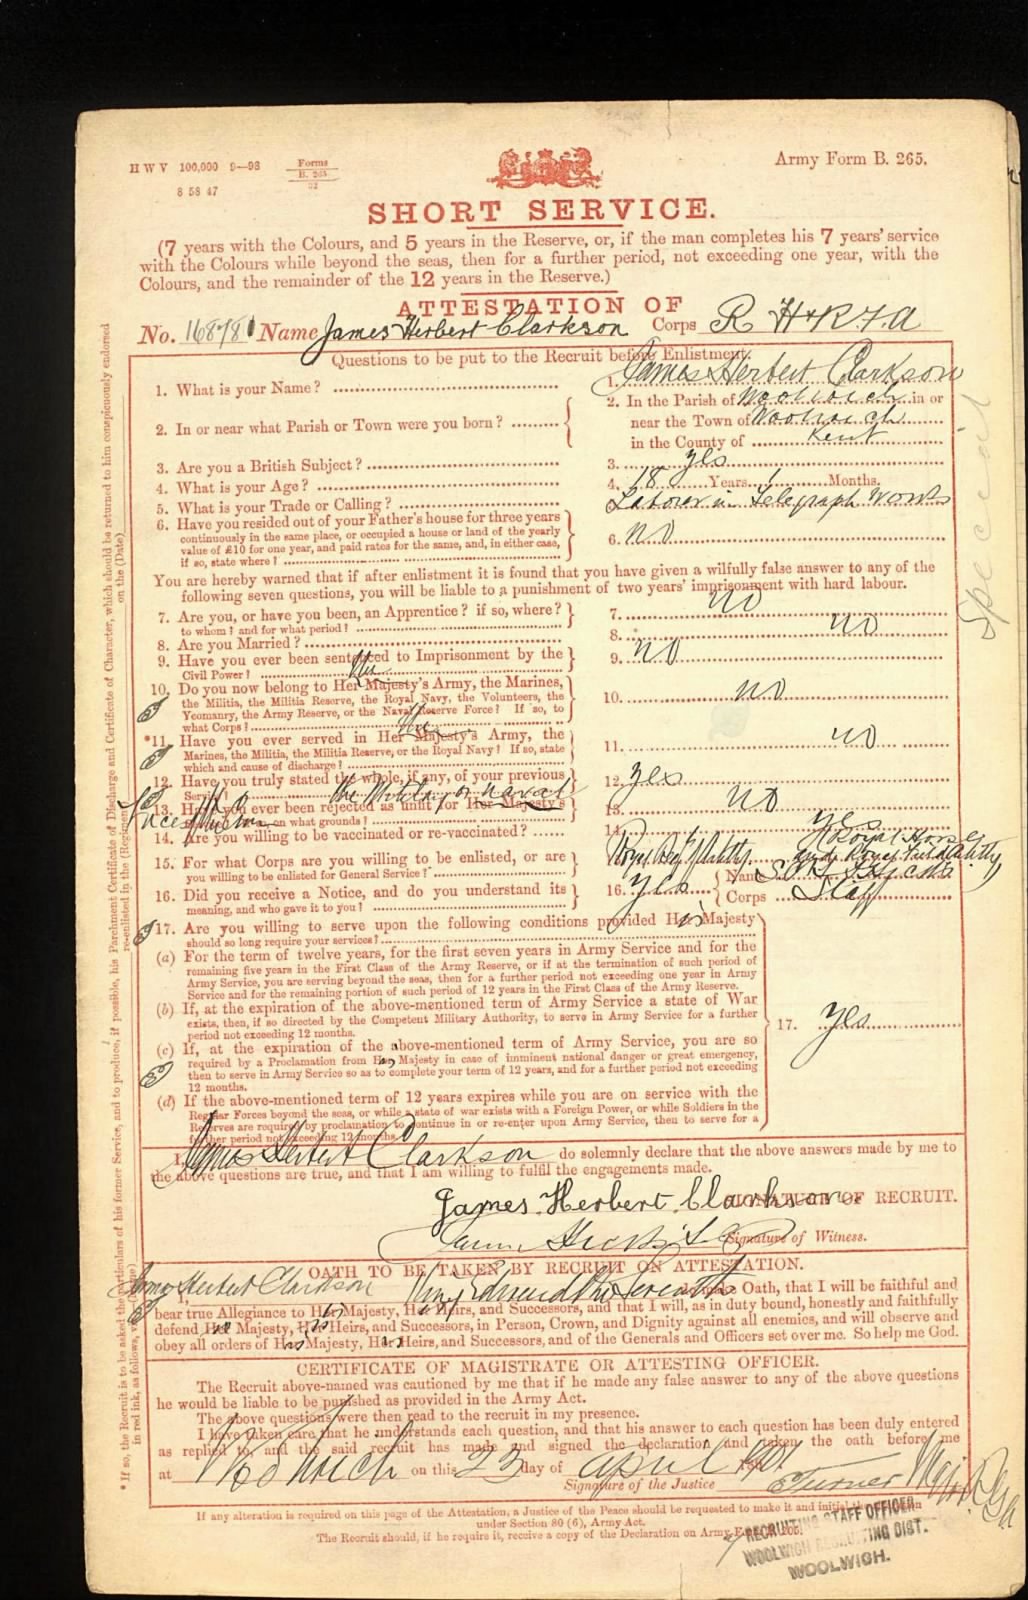 H W V 100,000 9—98 Forms B. 265 32 Army Form B. 265.
8 58 47
SHORT SERVICE.
(7 years with the Colours, and 5 years in the Reserve, or, if the man completes his 7 years' service
with the Colours while beyond the seas, then for a further period, not exceeding one year, with the
Colours, and the remainder of the 12 years in the Reserve.)
ATTESTATION OF
No. 168781 Name James Herbert Clarkson Corps R H & R F A
Questions to be put to the Recruit before Enlistment.
1. What is your Name? 1. James Herbert Clarkson
2. In or near what Parish or Town were you born? 2. In the Parish of Woolwich in or
near the Town of Woolwich
in the County of Kent
3. Are you a British Subject? 3. yes
4. What is your Age? 4. 18 Years 1 Months.
5. What is your Trade or Calling? Labourer in Telegraph Works
6. Have you resided out of your Father's house for three years
continuously in the same place, or occupied a house or land of the yearly
value of £10 for one year, and paid rates for the same, and, in either case,
if so, state where? 6. no
Special
You are hereby warned that if after enlistment it is found that you have given a wilfully false answer to any of the
following seven questions, you will be liable to a punishment of two years' imprisonment with hard labour.
7. Are you, or have you been, an Apprentice? if so, where?
to whom? and for what period? 7. no
8. Are you Married? 8. no
9. Have you ever been sentenced to Imprisonment by the
Civil Power? 9. no
10. Do you now belong to Her Majesty's Army, the Marines,
the Militia, the Militia Reserve, the Royal Navy, the Volunteers, the
Yeomanry, the Army Reserve, or the Naval Reserve Force? If so, to
what Corps? 10. no
*11. Have you ever served in Her Majesty's Army, the
Marines, the Militia, the Militia Reserve, or the Royal Navy? If so, state
which and cause of discharge? 11. no
12. Have you truly stated the whole, if any, of your previous
Service? 12. yes
the Military or naval
13. Have you ever been rejected as unfit for Her Majesty's
on what grounds? 13. no
14. Are you willing to be vaccinated or re-vaccinated? 14. yes
15. For what Corps are you willing to be enlisted, or are
you willing to be enlisted for General Service? Royal Horse
and Royal Field Artilly
16. Did you receive a Notice, and do you understand its
meaning, and who gave it to you? 16. yes Name
Corps Staff
17. Are you willing to serve upon the following conditions provided Her Majesty
should so long require your services?
(a) For the term of twelve years, for the first seven years in Army Service and for the
remaining five years in the First Class of the Army Reserve, or if at the termination of such period of
Army Service, you are serving beyond the seas, then for a further period not exceeding one year in Army
Service and for the remaining portion of such period of 12 years in the First Class of the Army Reserve.
(b) If, at the expiration of the above-mentioned term of Army Service a state of War
exists, then, if so directed by the Competent Military Authority, to serve in Army Service for a further
period not exceeding 12 months.
17. yes
(c) If, at the expiration of the above-mentioned term of Army Service, you are so
required by a Proclamation from Her Majesty in case of imminent national danger or great emergency,
then to serve in Army Service so as to complete your term of 12 years, and for a further period not exceeding
12 months.
(d) If the above-mentioned term of 12 years expires while you are on service with the
Regular Forces beyond the seas, or while a state of war exists with a Foreign Power, or while Soldiers in the
Reserves are required by proclamation to continue in or re-enter upon Army Service, then to serve for a
further period not exceeding 12 months.
I, James Herbert Clarkson do solemnly declare that the above answers made by me to
the above questions are true, and that I am willing to fulfil the engagements made.
James Herbert Clarkson SIGNATURE OF RECRUIT.
Signature of Witness.
OATH TO BE TAKEN BY RECRUIT ON ATTESTATION.
I, James Herbert Clarkson King Edward the Seventh make Oath, that I will be faithful and
bear true Allegiance to Her Majesty, Her Heirs, and Successors, and that I will, as in duty bound, honestly and faithfully
defend Her Majesty, Her Heirs, and Successors, in Person, Crown, and Dignity against all enemies, and will observe and
obey all orders of Her Majesty, Her Heirs, and Successors, and of the Generals and Officers set over me. So help me God.
CERTIFICATE OF MAGISTRATE OR ATTESTING OFFICER.
The Recruit above-named was cautioned by me that if he made any false answer to any of the above questions
he would be liable to be punished as provided in the Army Act.
The above questions were then read to the recruit in my presence.
I have taken care that he understands each question, and that his answer to each question has been duly entered
as replied to and the said recruit has made and signed the declaration and taken the oath before me
at Woolwich on this 23 day of April 1901
Signature of the Justice Turner Major
If any alteration is required on this page of the Attestation, a Justice of the Peace should be requested to make it and initial
under Section 80 (6), Army Act.
The Recruit should, if he require it, receive a copy of the Declaration on Army
RECRUITING STAFF OFFICER
WOOLWICH RECRUITING DIST.
WOOLWICH.
* If so, the Recruit is to be asked the particulars of his former Service, and to produce, if possible, his Parchment Certificate of Discharge and Certificate of Character, which should be returned to him conspicuously endorsed
in red ink, as follows, re-enlisted in the (Regiment) on the (Date)